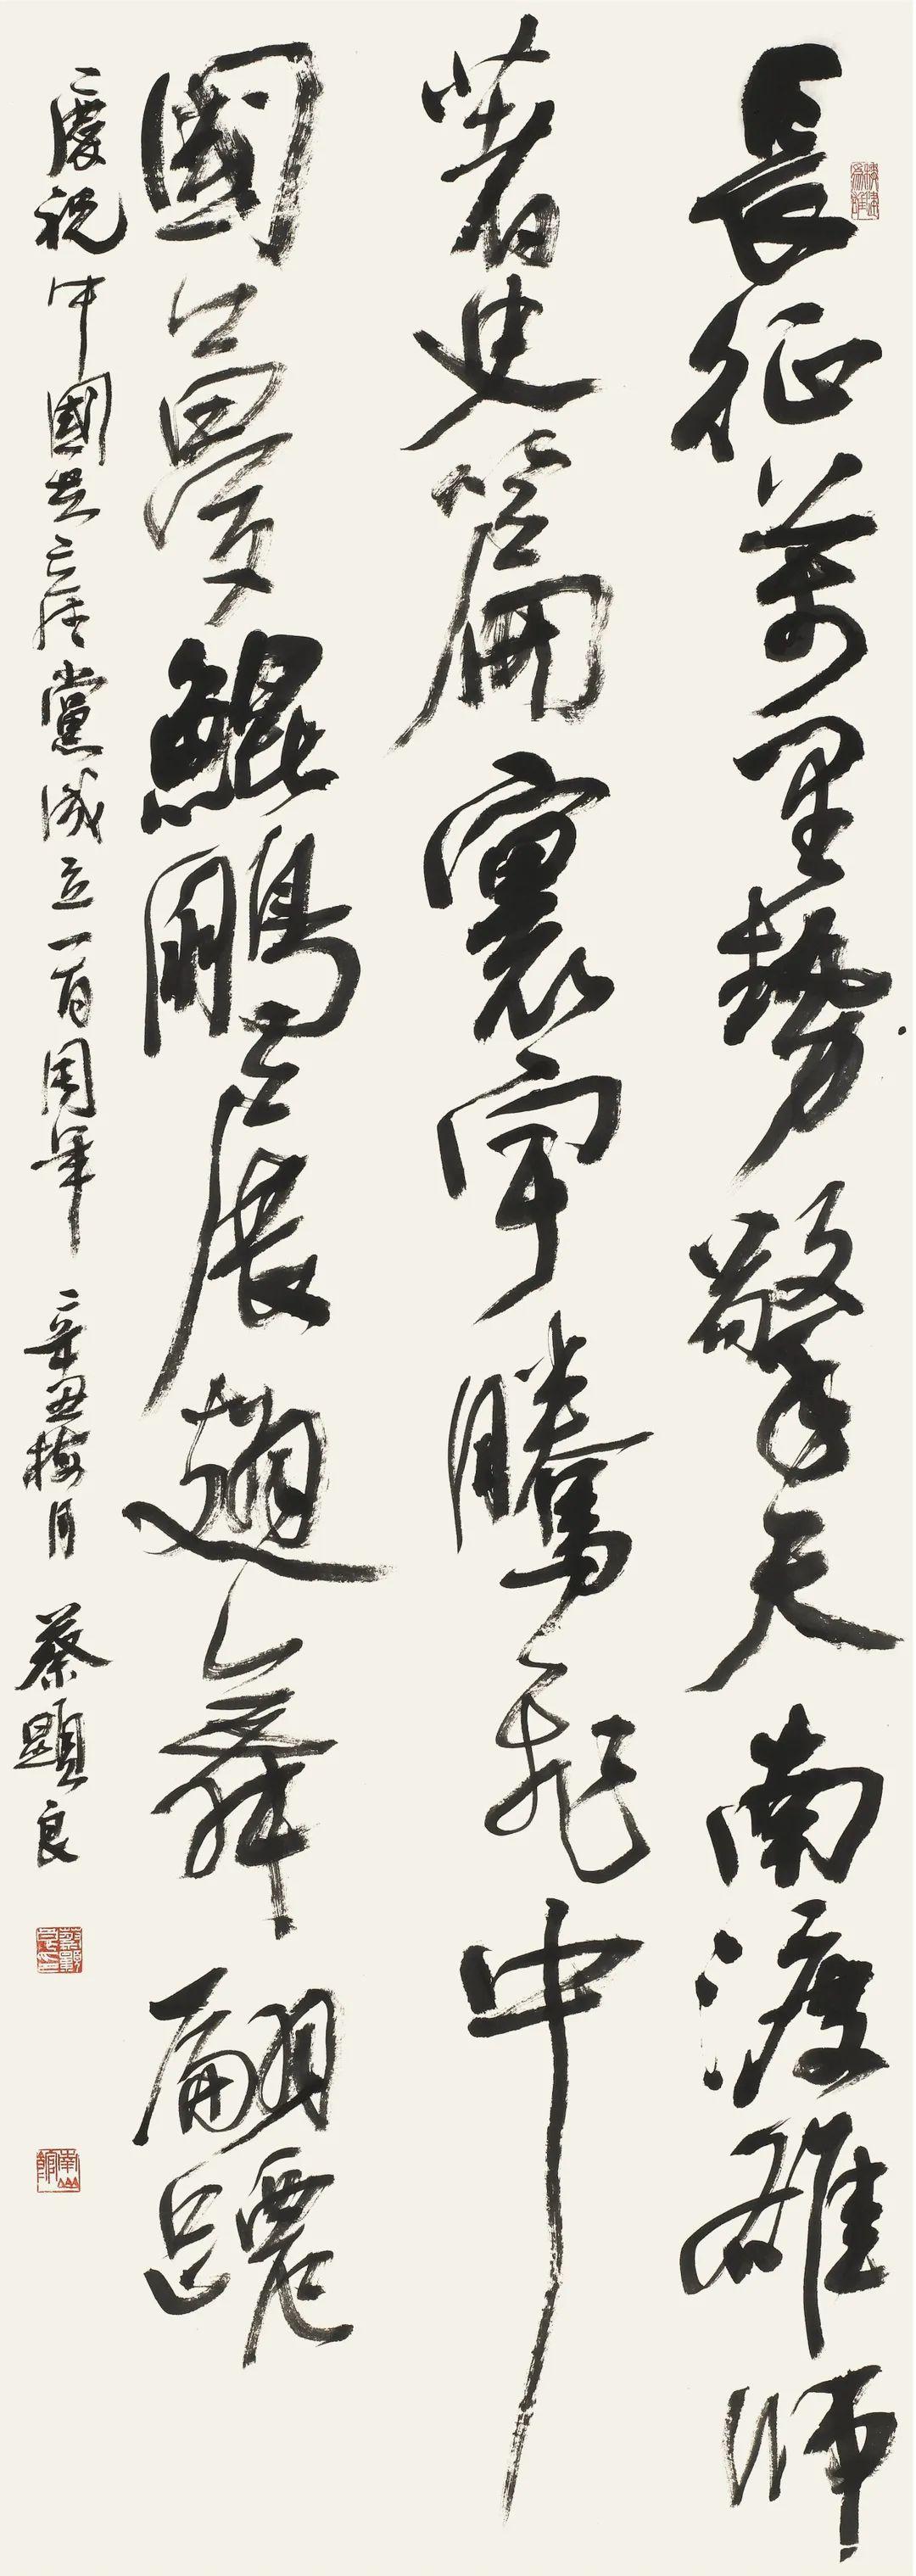 長征萬里勢擎天南渡雄師
著史篇寰宇騰飛中
國夢鯤鵬展翅舞翩躚
慶祝中國共产党黨成立一百周年 辛丑梅月 蔡顯良